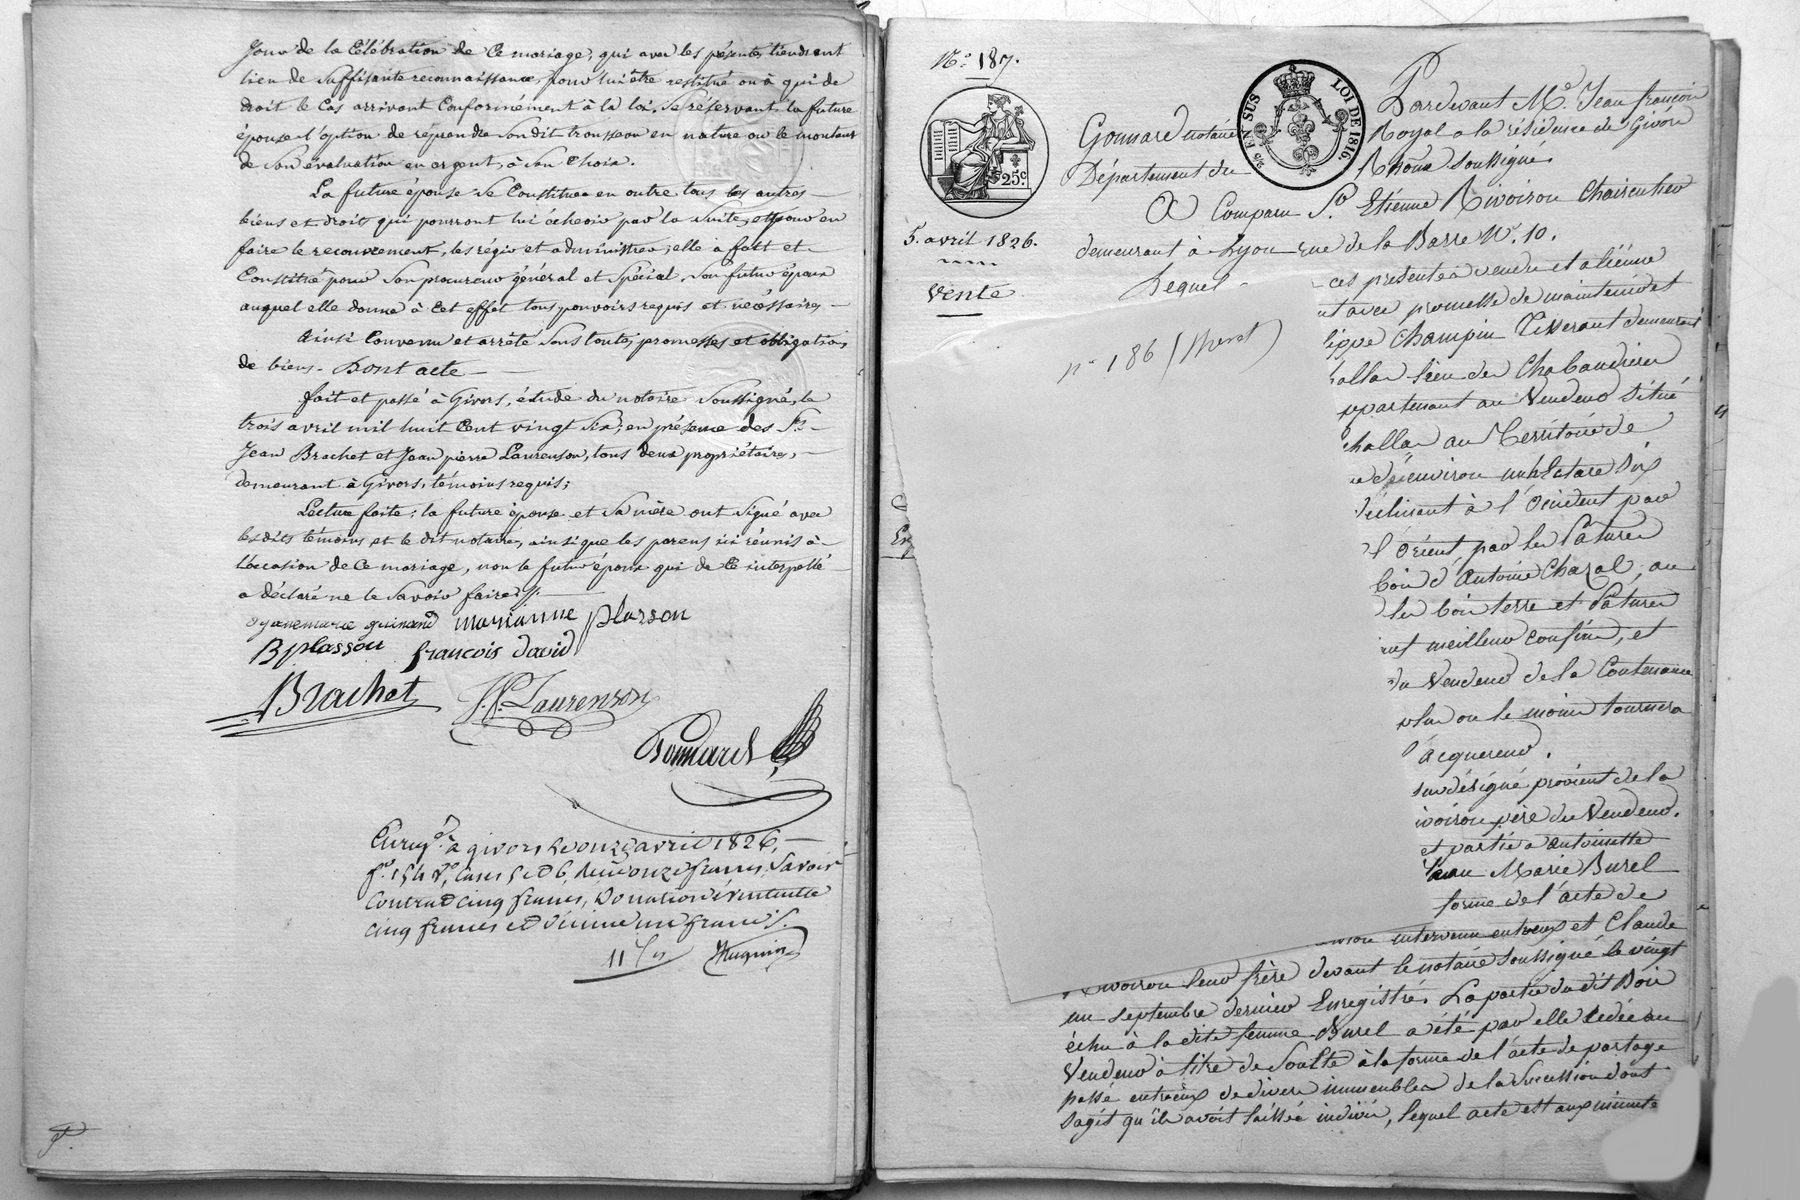 Jour de la Célébration de Ce mariage, qui avec les présentes tiendront
lieu de suffisante reconnaissance, pour lui être restitué ou à qui de
droit le cas arrivant Conformément à la loi. Se réservant la future
épouse l'option de reprendre son dit trousseau en nature ou le montant
de son évaluation en argent, à son Choix.
La future épouse se Constitue en outre tous les autres
biens et droits qui pourront lui écheoir par la Suite, et pour en
faire le recouvrement, les régir et administrer, elle a fait et
Constitué pour son procureur général et spécial, son futur époux
auquel elle donne à cet effet tous pouvoirs requis et nécéssaires
Ainsi Convenu et arrêté sous toutes promesses et obligations
de biens. Dont acte
fait et passé à Givors, étude du notaire soussigné, le
trois avril mil huit Cent vingt six, en présence des Srs
Jean Brachet et Jean pierre Laurenson, tous deux propriétaires,
demeurant à Givors, témoins requis;
Lecture faite; la future épouse et sa mère ont signé avec
lesdits témoins et le dit notaire, ainsi que les parens ici réunis à
l'occasion de ce mariage, non le futur époux qui de Ce interpellé
a déclaré ne le savoir faire.
marianne plasson
B plasson françois david
Brachet J.P. Laurenson
Gonnard
Enregé à givors le onze avril 1826,
fo 154 Vo, Cases 5 et 6, Reçu onze francs, Savoir
Contrat cinq francs, Donation éventuelle
cinq francs et Décime un franc.
11 fr
P.
No 187.
25 c
5. avril 1826.
Vente
EN SUS LOI DE 1816.
Pardevant Me Jean françois
Gonnard notaire Royal a la résidence de Givors
Département du Rhône soussigné
A Comparu Sr Etienne Rivoiron Chaircutier
demeurant à Lyon rue de la Barre No 10.
Lequel ces présentes vendu et aliéné
nt avec promesse de maintenir et
lippe Champin Tisserant demeurant
hallas lieu des Chabaudières
ppartenant au Vendeur situé
challas au Territoire de
d'environ un hectare dix
déclinant à l'Occident par
l'Orient par les Patures
bois d'Antoine Chazal, au
les bois terre et Patures
meilleurs confins, et
du Vendeur de la Contenance
plus ou le moins tournera
l'acquereur.
sus désigné provient de la
ivoiron père du Vendeur.
et partie a antoinette
Jean Marie Burel
forme de l'acte de
intervenu entr'eux et Claude
Rivoiron leur frère devant le notaire soussigné le vingt
un septembre dernier Enregistré. La partie du dit Bois
échu à la dite femme Burel a été par elle cédée au
Vendeur à titre de Soulte à la forme de l'acte de partage
passé entr'eux de divers immeubles de la Succession dont
sagit qu'ils avoit laissés indivis, lequel acte est aux minutes
no 186